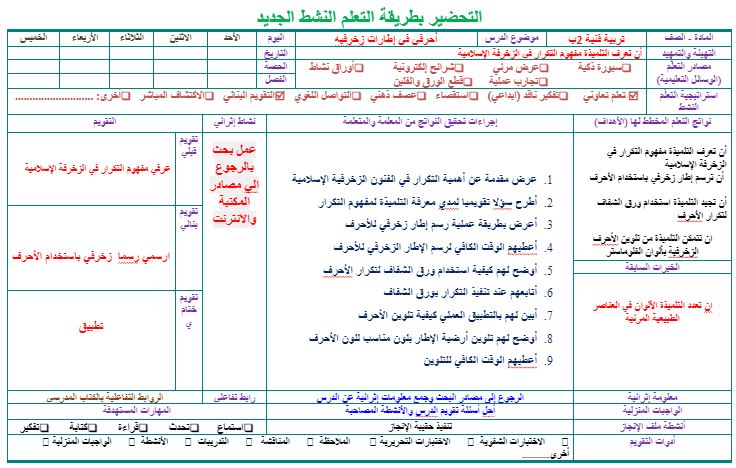 التحضير بطريقة التعلم النشط الجديد
المادة ـ الصف
تربية فنية 2ب
موضوع الدرس
أحرفي في إطارات زخرفيه
اليوم
الأحد
الاثنين
الثلاثاء
الأربعاء
الخميس
التهيئة والتمهيد
أن تعرف التلميذة مفهوم التكرار في الزخرفة الإسلامية
التاريخ
مصادر التعلم
(الوسائل التعليمية)
سبورة ذكية
عرض مرئي
شرائح إلكترونية
أوراق نشاط
تجارب عملية
قطع الورق والفلين
الحصة
الفصل
استراتيجية التعلم
النشط
تعلم تعاوني
تفكير ناقد (ابداعي)
استقصاء
عصف ذهني
التواصل اللغوي
التقويم البنائي
الاكتشاف المباشر
أخرى: ........................
نواتج التعلم المخطط لها (الأهداف)
إجراءات تحقيق النواتج من المعلمة والمتعلمة
نشاط إثرائي
التقويم
أن تعرف التلميذة مفهوم التكرار في
الزخرفة الإسلامية
أن ترسم إطار زخرفي باستخدام الأحرف
أن تجيد التلميذة استخدام ورق الشفاف
لتكرار الأحرف
ان تتمكن التلميذة من تلوين الأحرف
الزخرفية بألوان الفلوماستر
الخبرات السابقة
إن تعدد التلميذة الألوان في العناصر
الطبيعية المرئية
1. عرض مقدمة عن أهمية التكرار في الفنون الزخرفية الإسلامية
2. أطرح سؤلا تقويميا لمدي معرفة التلميذة لمفهوم التكرار
3. أعرض بطريقة عملية رسم إطار زخرفي للأحرف
4. أعطيهم الوقت الكافي لرسم الإطار الزخرفي للأحرف
5. أوضح لهم كيفية استخدام ورق الشفاف لتكرار الأحرف
6. أتابعهم عند تنفيذ التكرار بورق الشفاف
7. أبين لهم بالتطبيق العملي كيفية تلوين الأحرف
8. أوضح لهم تلوين أرضية الإطار بلون مناسب للون الأحرف
9. أعطيهم الوقت الكافي للتلوين
عمل بحث
بالرجوع
إلي مصادر
المكتبة
والانترنت
تقويم
قبلي
عرفي مفهوم التكرار في الزخرفة الإسلامية
تقويم
بنائي
ارسمي رسما زخرفي باستخدام الأحرف
تقويم
ختام
ي
تطبيق
معلومة إثرائية
الرجوع إلى مصادر البحث وجمع معلومات إثرائية عن الدرس
رابط تفاعلي
الروابط التفاعلية بالكتاب المدرسي
الواجبات المنزلية
أحل أسئلة تقويم الدرس والأنشطة المصاحبة
المهارات المستهدفة
أنشطة ملف الإنجاز
تنفيذ حقيبة الإنجاز
استماع
تحدث
قراءة
كتابة
تفكير
أدوات التقويم
الاختبارات الشفوية
الاختبارات التحريرية
الملاحظة
المناقشة
التدريبات
الأنشطة
الواجبات المنزلية
أخرى..................